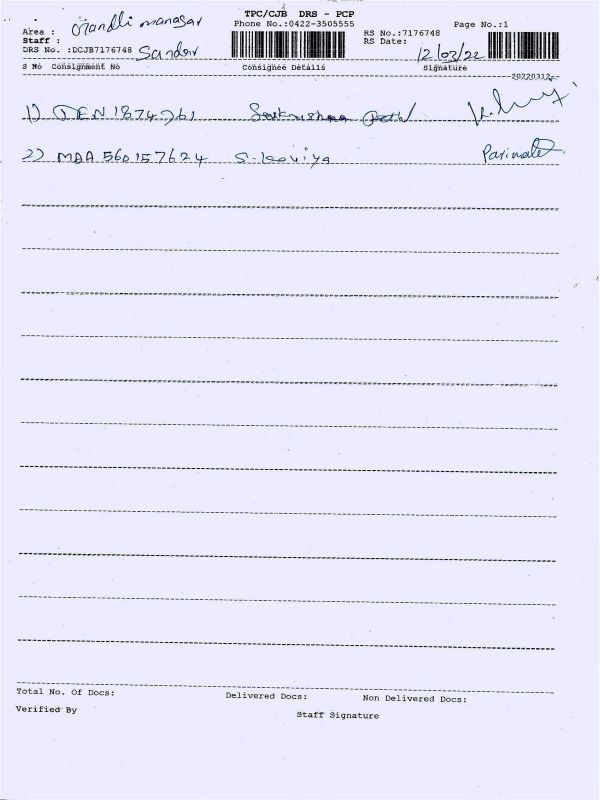 TPC/CJB DRS - PCP
Phone No.:0422-3505555 Page No.:1
Area : managar
Staff : RS No.:7176748
DRS No. :DCJB7176748 RS Date: 12/03/22
S No Consignment No Consignee Details Signature
20220312
1)
2) MAA 560157624 S. Kaviya
Total No. Of Docs: Delivered Docs: Non Delivered Docs:
Verified By Staff Signature